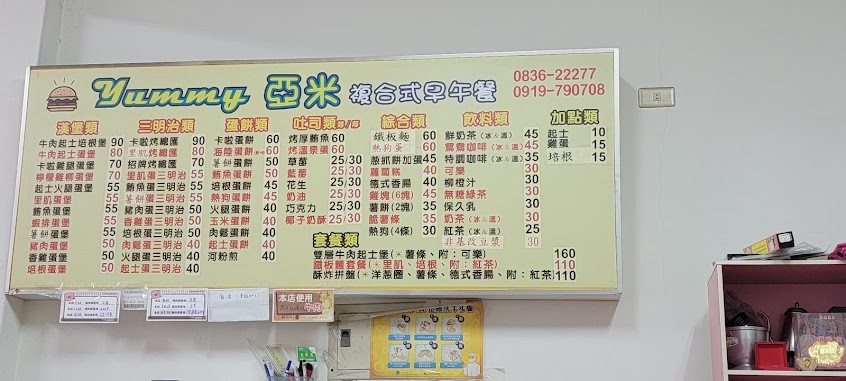 Yummy 亞米 複合式早午餐
0836-22277
0919-790708
漢堡類
牛肉起士培根堡 90
牛肉起士蛋堡 80
卡啦雞腿蛋堡 70
檸檬雞柳蛋堡 70
起士火腿蛋堡 60
里肌蛋堡 55
鮪魚蛋堡 55
蝦排蛋堡 55
薯餅蛋堡 50
豬肉蛋堡 50
香雞蛋堡 50
培根蛋堡 50
三明治類
卡啦烤總匯 80
里肌烤總匯 70
招牌烤總匯 70
里肌蛋三明治 55
鮪魚蛋三明治 55
薯餅蛋三明治 50
豬肉蛋三明治 50
香雞蛋三明治 50
培根蛋三明治 50
肉鬆蛋三明治 40
火腿蛋三明治 40
起士蛋三明治 40
蛋餅類
卡啦蛋餅 60
海陸蛋餅 60
薯餅蛋餅 50
鮪魚蛋餅 50
培根蛋餅 45
熱狗蛋餅 45
火腿蛋餅 40
玉米蛋餅 40
肉鬆蛋餅 40
起士蛋餅 40
河粉煎 40
吐司類
烤厚鮪魚 60
烤溫泉蛋 60
草莓 25/30
藍莓 25/30
花生 25/30
奶油 25/30
巧克力 25/30
椰子奶酥 25/30
綜合類
鐵板麵 60
熱狗蛋 60
蔥抓餅加蛋 45
蘿蔔糕 40
德式香腸 40
雞塊(6塊) 45
薯餅(2塊) 35
脆薯條 35
熱狗(4條) 30
飲料類
鮮奶茶(冰&溫) 45
鴛鴦咖啡(冰&溫) 45
特調咖啡(冰&溫) 35
可樂 30
柳橙汁 30
無糖綠茶 30
保久乳 30
奶茶(冰&溫) 30
紅茶(冰&溫) 25
非基改豆漿 30
加點類
起士 10
雞蛋 15
培根 15
套餐類
雙層牛肉起士堡(*薯條、附:可樂) 160
鐵板麵套餐(*里肌、培根、附:紅茶) 110
酥炸拼盤(*洋蔥圈、薯條、德式香腸、附:紅茶) 110
本店使用
牛肉